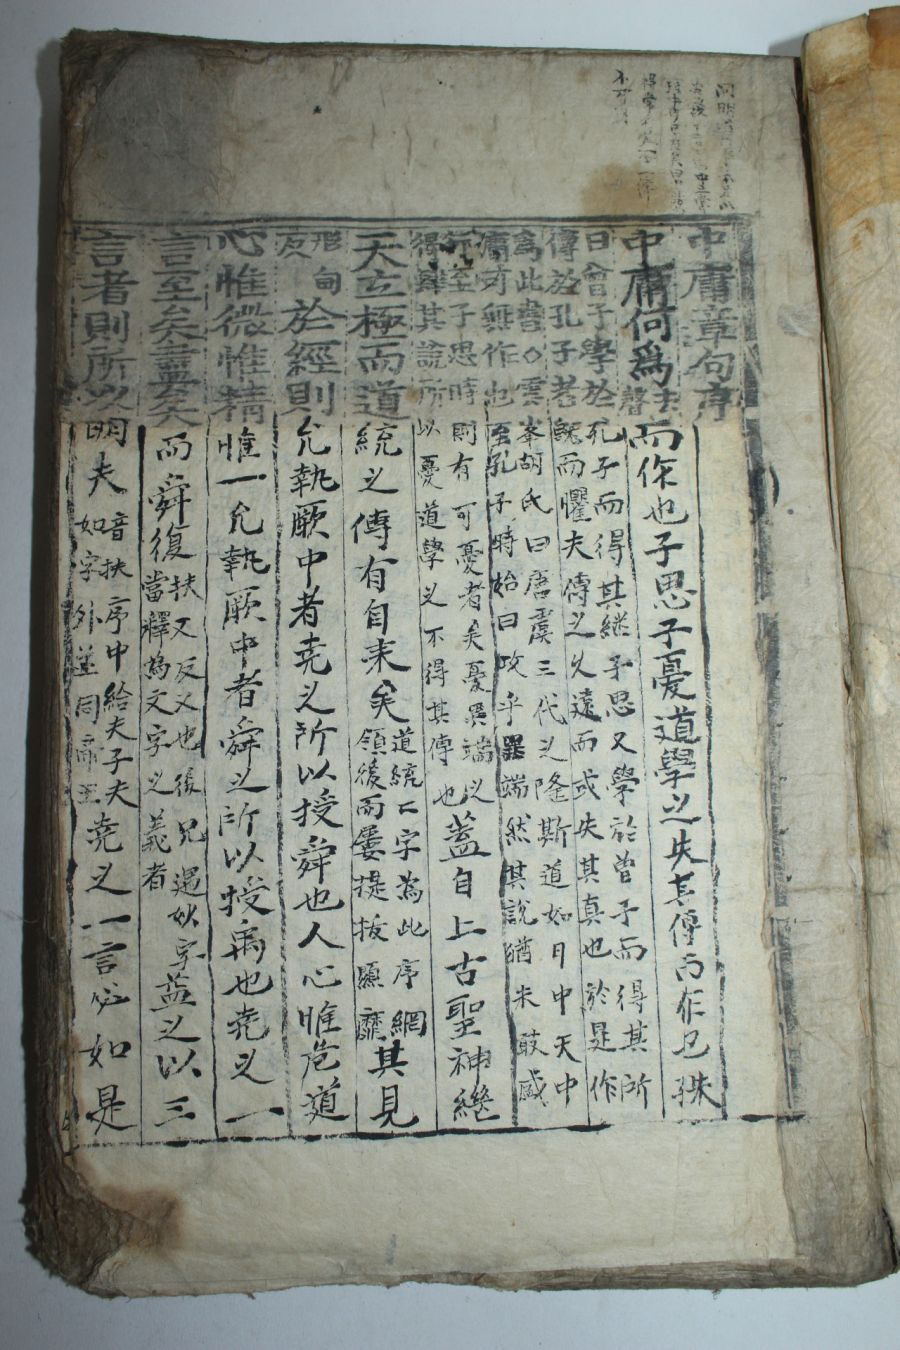 中庸章句序
中庸何爲去聲而作也子思子憂道學之失其傳而作也
曰曾子學於孔子而得其継子思又學於曾子而得其所
傳於孔子者旣而懼夫傳之久遠而或失其真也於是作
爲此書○雲峯胡氏曰唐虞三代之隆斯道如日中天中
庸可無作也至孔子時始曰攻乎異端然其說猶未敢盛
行至子思時則有可憂者矣憂異端之
得肆其說所以憂道學之不得其傳也
蓋自上古聖神継
天立極而道統之傳有自来矣
道統二字爲此序網
領後面屢提掇
其見
形甸
反
於經則允執厥中者堯之所以授舜也人心惟危道
心惟微惟精惟一允執厥中者舜之所以授禹也堯之一
言至矣盡矣而舜復
扶又反又也後凡遇此字
當釋爲文字之義者
益之以三
言者則所以明夫
音扶序中給夫子夫
如字外並同
堯之一言必如是